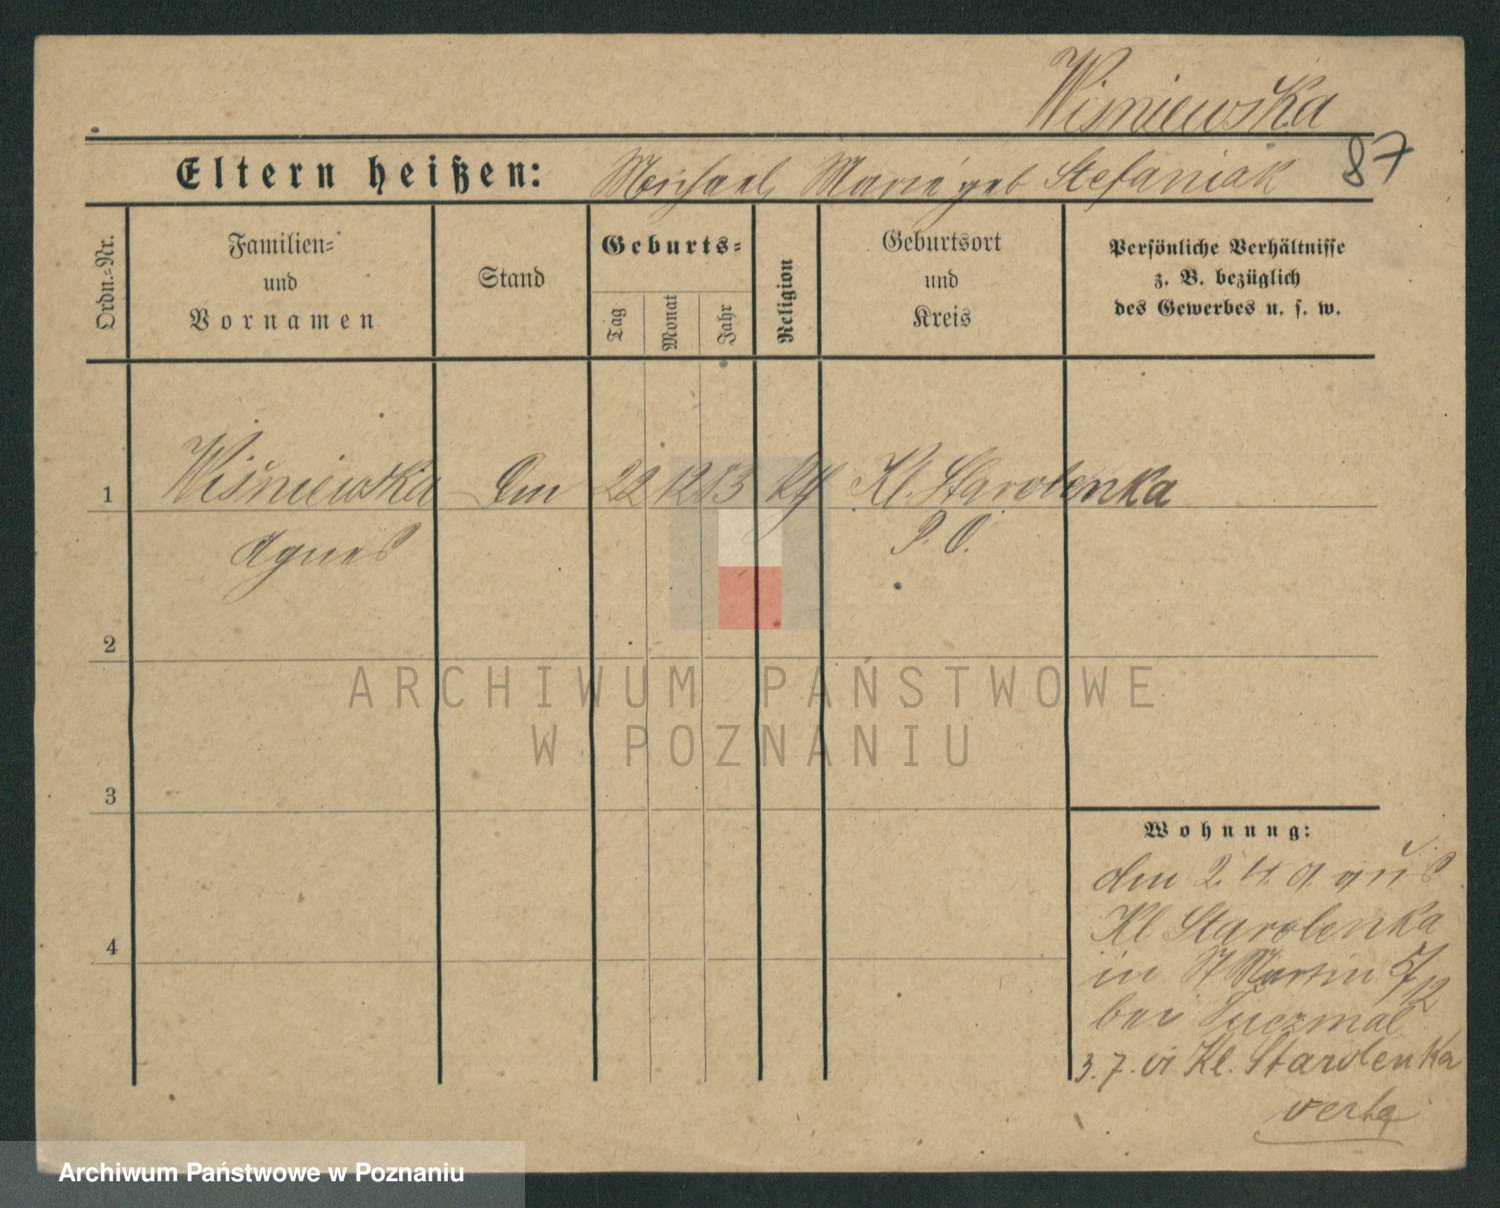 Wiśniewska
87
Eltern heißen: Michael, Marie geb Stefaniak
Ordn.=Nr.
Familien=
und
Vornamen
Stand
Geburts=
Tag
Monat
Jahr
Religion
Geburtsort
und
Kreis
Persönliche Verhältnisse
z. B. bezüglich
des Gewerbes u. s. w.
1 Wiśniewska 22 12 83 Kl. Starolenka
Agnes P. O.
2
3
4
Wohnung:
den aus
Kl Starolenka
in St Martin 5/12
bei Tuczmal
3. 7. Kl. Starolenka
ARCHIWUM PAŃSTWOWE
W POZNANIU
Archiwum Państwowe w Poznaniu